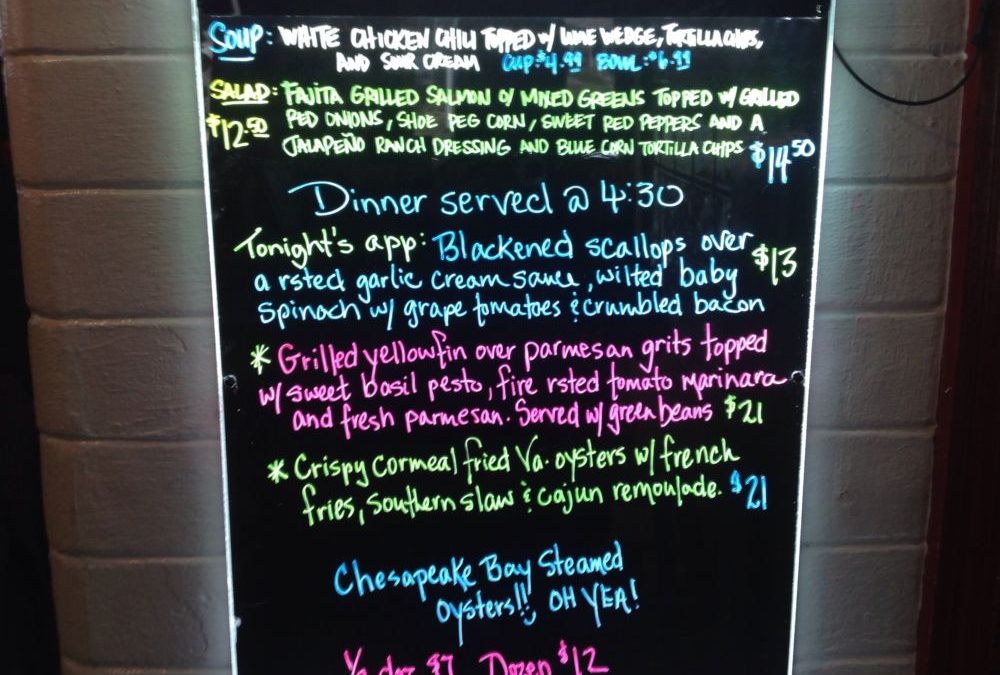 SOUP: WHITE CHICKEN CHILI TOPPED W/ LIME WEDGE, TORTILLA CHIPS,
AND SOUR CREAM CUP: $4.99 BOWL: $6.99
SALAD: FAJITA GRILLED SALMON O/ MIXED GREENS TOPPED W/ GRILLED
$12.50 RED ONIONS, SHOE PEG CORN, SWEET RED PEPPERS AND A
JALAPEÑO RANCH DRESSING AND BLUE CORN TORTILLA CHIPS $14.50
Dinner served @ 4:30
Tonight's app: Blackened scallops over
a rsted garlic cream sauce, wilted baby $13
spinach w/ grape tomatoes & crumbled bacon
* Grilled yellowfin over parmesan grits topped
w/ sweet basil pesto, fire rsted tomato marinara
and fresh parmesan. Served w/ green beans $21
* Crispy Cormeal fried Va. oysters w/ french
fries, Southern slaw & cajun remoulade. $21
Chesapeake Bay Steamed
oysters!!, OH YEA!
1/2 doz $7 Dozen $12